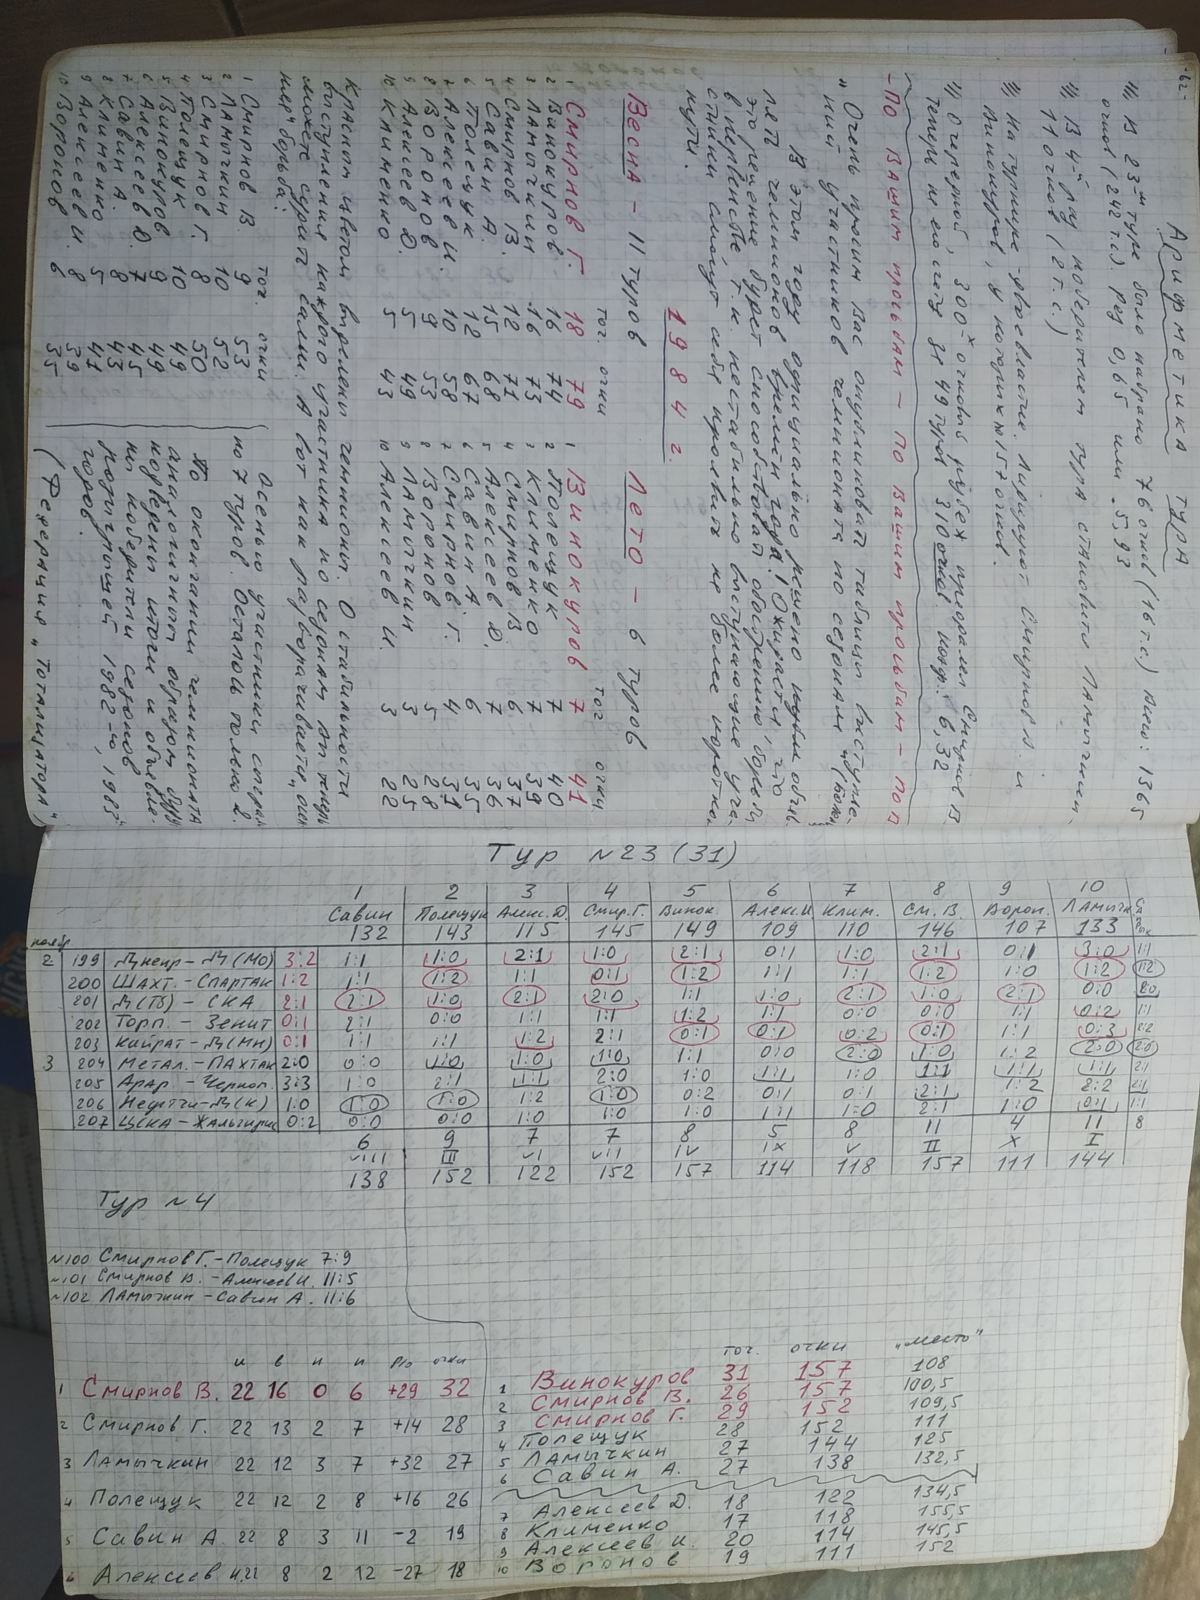 -62-
Арифметика тура
В 23-м туре было набрано 76 очков (16 т.с.) Всего: 1365
очков (242 т.с.) 0,65 или 5,93
В 4-й раз победителем тура становится Ламычкин -
11 очков (2 т.с.)
На турнире двоевластие. Лидируют Смирнов В. и
Винокуров, у которых 157 очков.
Очередной, 300-х очковый рубеж преодолел Смирнов В.
Теперь на его счету за 49 туров 310 очков. 6,32
-По Вашим просьбам - по Вашим просьбам - по
"Очень просим Вас опубликовать таблицы выступле-
ний участников чемпионата по сезонам"
В этом году официально решено объяв.
лять чемпионов времён года! Ожидается, что
это решение будет способствовать обострению борьбы
в первенстве т.к. нестабильно выступающие уча-
стники смогут себя проявить на более коротком
пути.
1984 г.
Весна - 11 туров
точ. очки
1 Смирнов Г. 18 79
2 Винокуров 16 74
3 Ламычкин 16 73
4 Смирнов В. 12 71
5 Савин А. 15 68
6 Полещук 12 67
7 Алексеев И. 10 58
8 Воронов 9 53
9 Алексеев Д. 5 49
10 Клименко 5 43
Лето - 6 туров
точ очки
1 Винокуров 7 41
2 Полещук 7 40
3 Клименко 7 39
4 Смирнов В 6 37
5 Алексеев Д. 7 36
6 Савин А 6 35
7 Смирнов Г. 4 31
8 Воронов 5 28
9 Ламычкин 3 25
10 Алексеев И. 3 22
Красным цветом выделены чемпионы. О стабильности
выступления каждого участника по сезонам вы теперь
можете судить сами. А вот как разворачивается "осен
няя" борьба:
точ. очки
1 Смирнов В 9 53
2 Ламычкин 10 52
3 Смирнов Г. 8 50
4 Полещук 10 49
5 Винокуров 9 49
6 Алексеев Д. 7 45
7 Савин А. 8 43
8 Клименко 5 41
9 Алексеев И. 8 39
10 Воронов 6 35
Осенью участники сыграли
по 7 туров. Осталось только 2.
По окончании чемпионата
аналогичным образом будут
подведены итоги и объявле-
ны победители сезонов
розыгрышей 1982-го, 1983
годов.
(Редакция "Тотализатора")
Тур №23 (31)
1 2 3 4 5 6 7 8 9 10
Савин Полещук Алекс.Д. Смир.Г. Винок. Алекс.И Клим. См.В. Ворон. Ламычк
132 143 115 145 149 109 110 146 107 133
ноябр
2 199 Днепр - Д(Мо) 3:2 1:1 1:0 2:1 1:0 2:1 0:1 1:0 2:1 0:1 3:0 1:1
200 Шахт. - Спартак 1:2 1:1 1:2 1:1 0:1 1:2 1:1 1:1 1:2 1:0 1:2 1:2
201 Д(Тб) - СКА 2:1 2:1 1:0 2:1 2:0 1:1 1:0 2:1 1:0 2:1 0:0 2:0
202 Торп. - Зенит 0:1 2:1 0:0 1:1 1:1 1:2 1:1 0:0 0:0 1:1 0:2 1:1
203 Кайрат - Д(Мн) 0:1 1:1 1:1 1:2 2:1 0:1 0:1 0:2 0:1 1:1 0:3 2:2
3 204 Метал. - Пахтак 2:0 0:0 1:0 1:0 1:0 1:1 0:0 2:0 1:0 1:2 2:0 2:0
205 Арар. - Черном. 3:3 1:0 2:1 1:1 2:0 1:0 1:1 1:0 1:1 1:1 1:1 2:1
206 Нефтчи - Д(К) 1:0 1:0 1:0 1:2 1:0 0:2 0:1 0:1 2:1 1:2 2:2 2:1
207 ЦСКА - Жальгирис 0:2 0:0 0:0 1:0 1:0 1:0 1:1 1:0 2:1 1:0 0:1 1:1
6 9 7 7 8 5 8 11 4 11 8
VIII III VI VII IV IX V II X I
138 152 122 152 157 114 118 157 111 144
Тур №4
№100 Смирнов Г. - Полещук 7:9
№101 Смирнов В. - Алексеев И. 11:5
№102 Ламычкин - Савин А. 11:6
и в н п р/о очки
1 Смирнов В. 22 16 0 6 +29 32
2 Смирнов Г. 22 13 2 7 +14 28
3 Ламычкин 22 12 3 7 +32 27
4 Полещук 22 12 2 8 +16 26
5 Савин А. 22 8 3 11 -2 19
6 Алексеев И. 22 8 2 12 -27 18
точ. очки "место"
1 Винокуров 31 157 108
2 Смирнов В. 26 157 100,5
3 Смирнов Г. 29 152 109,5
4 Полещук 28 152 111
5 Ламычкин 27 144 125
6 Савин А. 27 138 132,5
7 Алексеев Д. 18 122 134,5
8 Клименко 17 118 155,5
9 Алексеев И. 20 114 145,5
10 Воронов 19 111 152